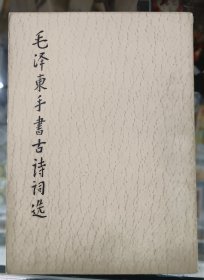 毛泽東手書古詩詞选